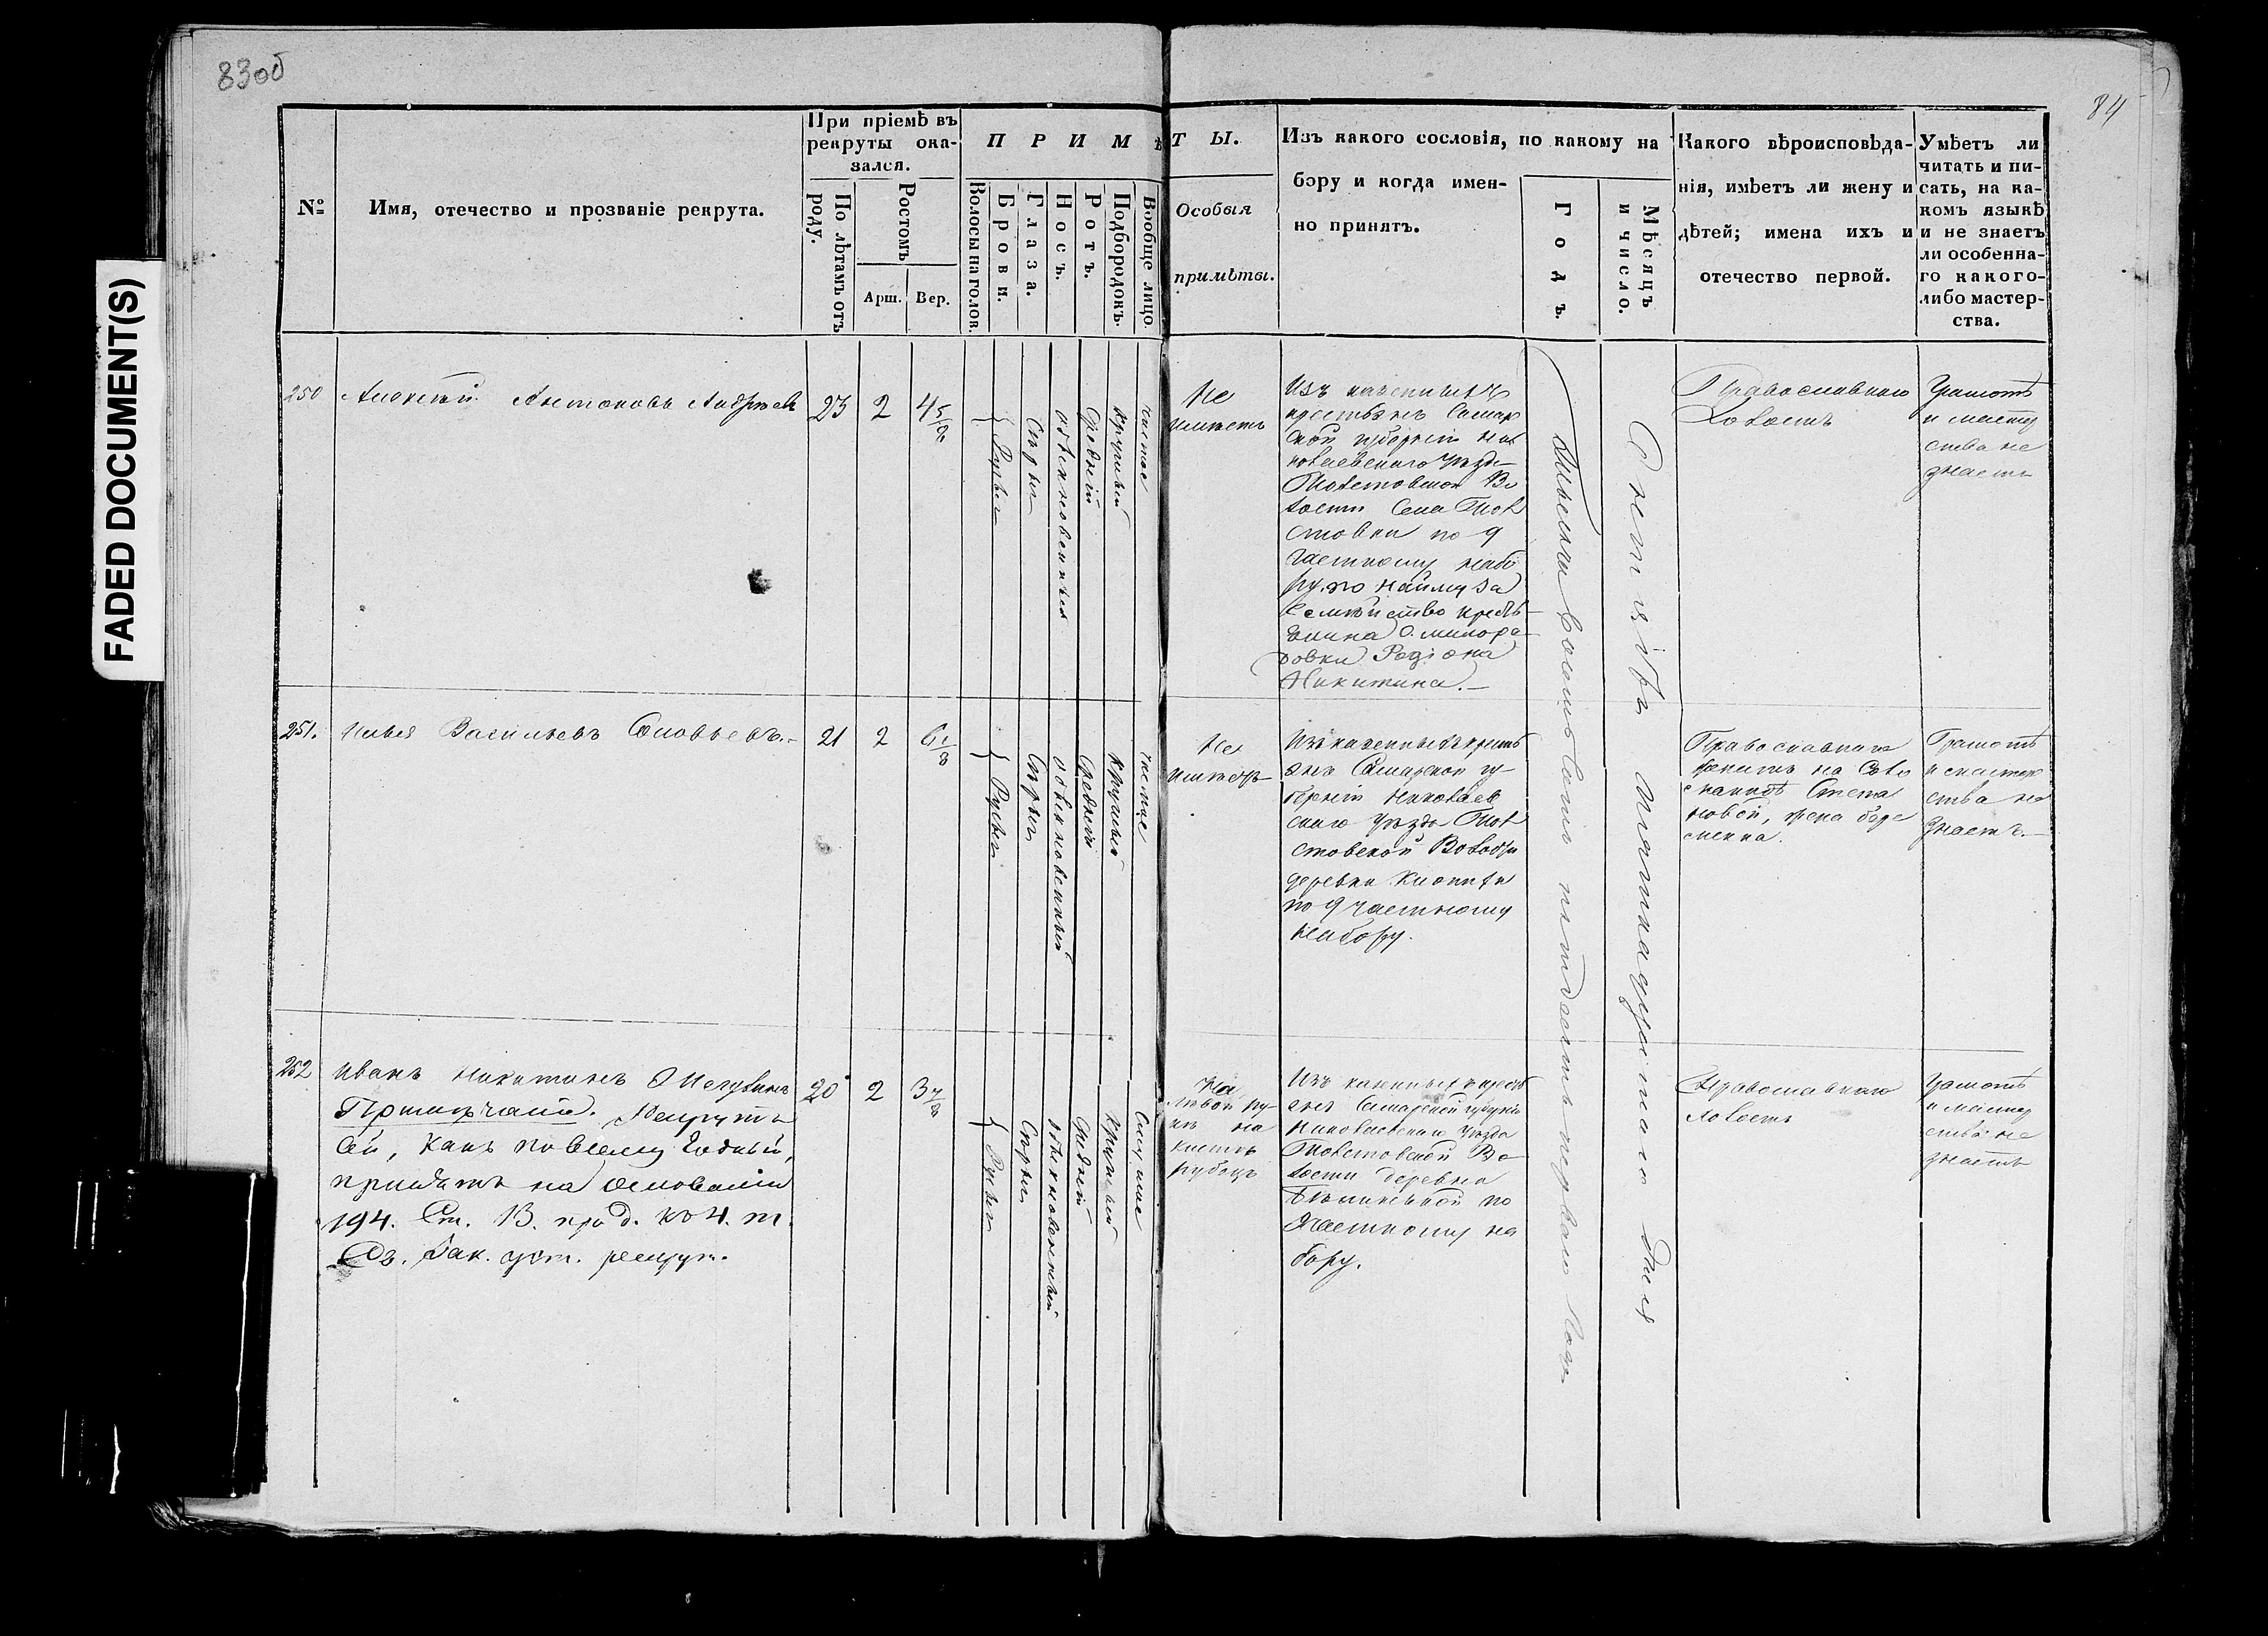 83об
84
FADED DOCUMENT(S)
№
Имя, отечество и прозваніе рекрута.
При пріемѣ въ
рекруты ока-
зался.
По лѣтамъ отъ
роду.
Ростомъ
Арш.
Вер.
ПРИМѢТЫ.
Волосы на голов.
Брови.
Глаза.
Носъ.
Ротъ.
Подбородокъ.
Вообще лицо.
Особыя
примѣты.
Изъ какого сословія, по какому на
бору и когда имен-
но принятъ.
Годъ.
Мѣсяцъ
и число.
Какого вѣроисповѣда-
нія, имѣетъ ли жену и
дѣтей; имена ихъ и
отечество первой.
Умѣетъ ли
читать и пи-
сать, на ка-
комъ языкѣ
и не знаетъ
ли особенна-
го какого-
либо мастер-
ства.
250
Алексѣй Антоновъ Андреевъ
23
2
4 5/8
Русыя
Сѣрыя
обыкновенный
Средній
круглый
чистое
Не
имѣетъ
Изъ казенныхъ
крестьянъ Самар
ской губерніи Ни
колаевскаго уѣзда
Толстовской Во
лости Села Тол
стовки по 9
частному набо
ру, по найму за
семѣйство кресть
янина С. Милора
довки Родіона
Никитина.
Тысяча восемьсотъ пятдесятъ перваго года
Октября пятнадцатаго дня
Православнаго
Холостъ
Грамотѣ
и мастер
ства не
знаетъ
251.
Илья Васильевъ Соловьевъ.
21
2
6 1/8
Русыя
Сѣрыя
обыкновенный
Средній
круглый
чистое
Не
имѣетъ
Изъ казенныхъ кресть
янъ Самарской гу-
берніи Николаев
скаго уѣзда Тол
стовской Волости
деревни
по 9 частному
набору.
Православнаго
женатъ на
Степа
новой, жена бере
менна.
Грамотѣ
и мастер
ства не
знаетъ.
252
Иванъ Никитинъ
Примѣчаніе. Рекрутъ
сей, какъ по всему годный,
принятъ на основаніи
194. Ст. 13. прод. къ 4. т.
Св. Зак. уст. рекрут.
20
2
3 7/8
Русыя
Сѣрыя
обыкновенный
Средній
Круглый
Смуглое
На
лѣвой ру-
кѣ на
кисти
рубецъ
Изъ казенныхъ кресть
янъ Самарской губерніи
Николаевскаго уѣзда
Толстовской Во
лости деревни
по
частному на
бору.
Православнаго
Холостъ
Грамотѣ
и мастер
ства не
знаетъ